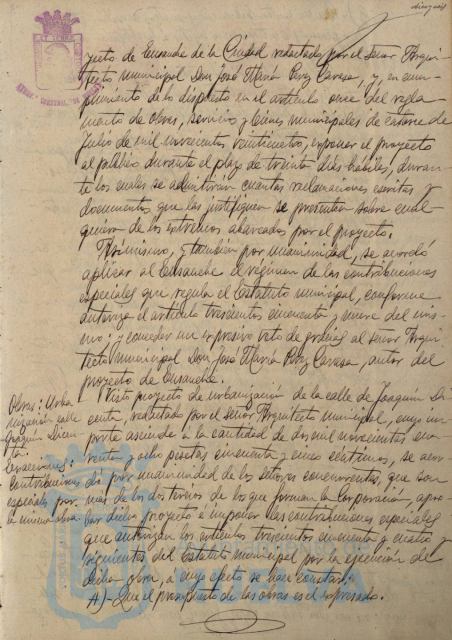 yecto de Ensanche de la Ciudad redactado por el Señor Arqui-
tecto municipal Don José María Pérez Carasa, y, en cum-
plimiento de lo dispuesto en el artículo once del regla-
mento de obras, servicios y bienes municipales de catorce de
Julio de mil novecientos veinticuatro, exponer el proyecto
al público durante el plazo de treinta días hábiles, duran-
te los cuales se admitirán cuantas reclamaciones escritas y
documentos que las justifiquen se presenten sobre cual-
quiera de los extremos abarcados por el proyecto.
Asimismo, y también por unanimidad, se acordó
aplicar al Ensanche el régimen de las contribuciones
especiales que regula el Estatuto municipal, conforme
autoriza el artículo trescientos cincuenta y nueve del mis-
mo; y conceder un expresivo voto de gracias al señor Arqui-
tecto municipal Don José María Pérez Carasa, autor del
proyecto de Ensanche.
Obras: Urba
nización calle
Joaquín Dicen
ta:
Contribuciones
especiales por
la misma obra
Visto proyecto de urbanización de la calle de Joaquín Di-
centa, redactado por el señor Arquitecto municipal, cuyo im-
porte asciende a la cantidad de dos mil novecientas cua-
renta y ocho pesetas cincuenta y cinco céntimos, se acor-
dó por unanimidad de los señores concurrentes, que son
más de los dos tercios de los que forman la Corporación, apro-
bar dicho proyecto é imponer las contribuciones especiales
que autorizan los artículos trescientos cincuenta y cuatro y
siguientes del Estatuto municipal por la ejecución de
dicha obra, a cuyo efecto se hace constar:
A)- Que el presupuesto de las obras es el expresado.